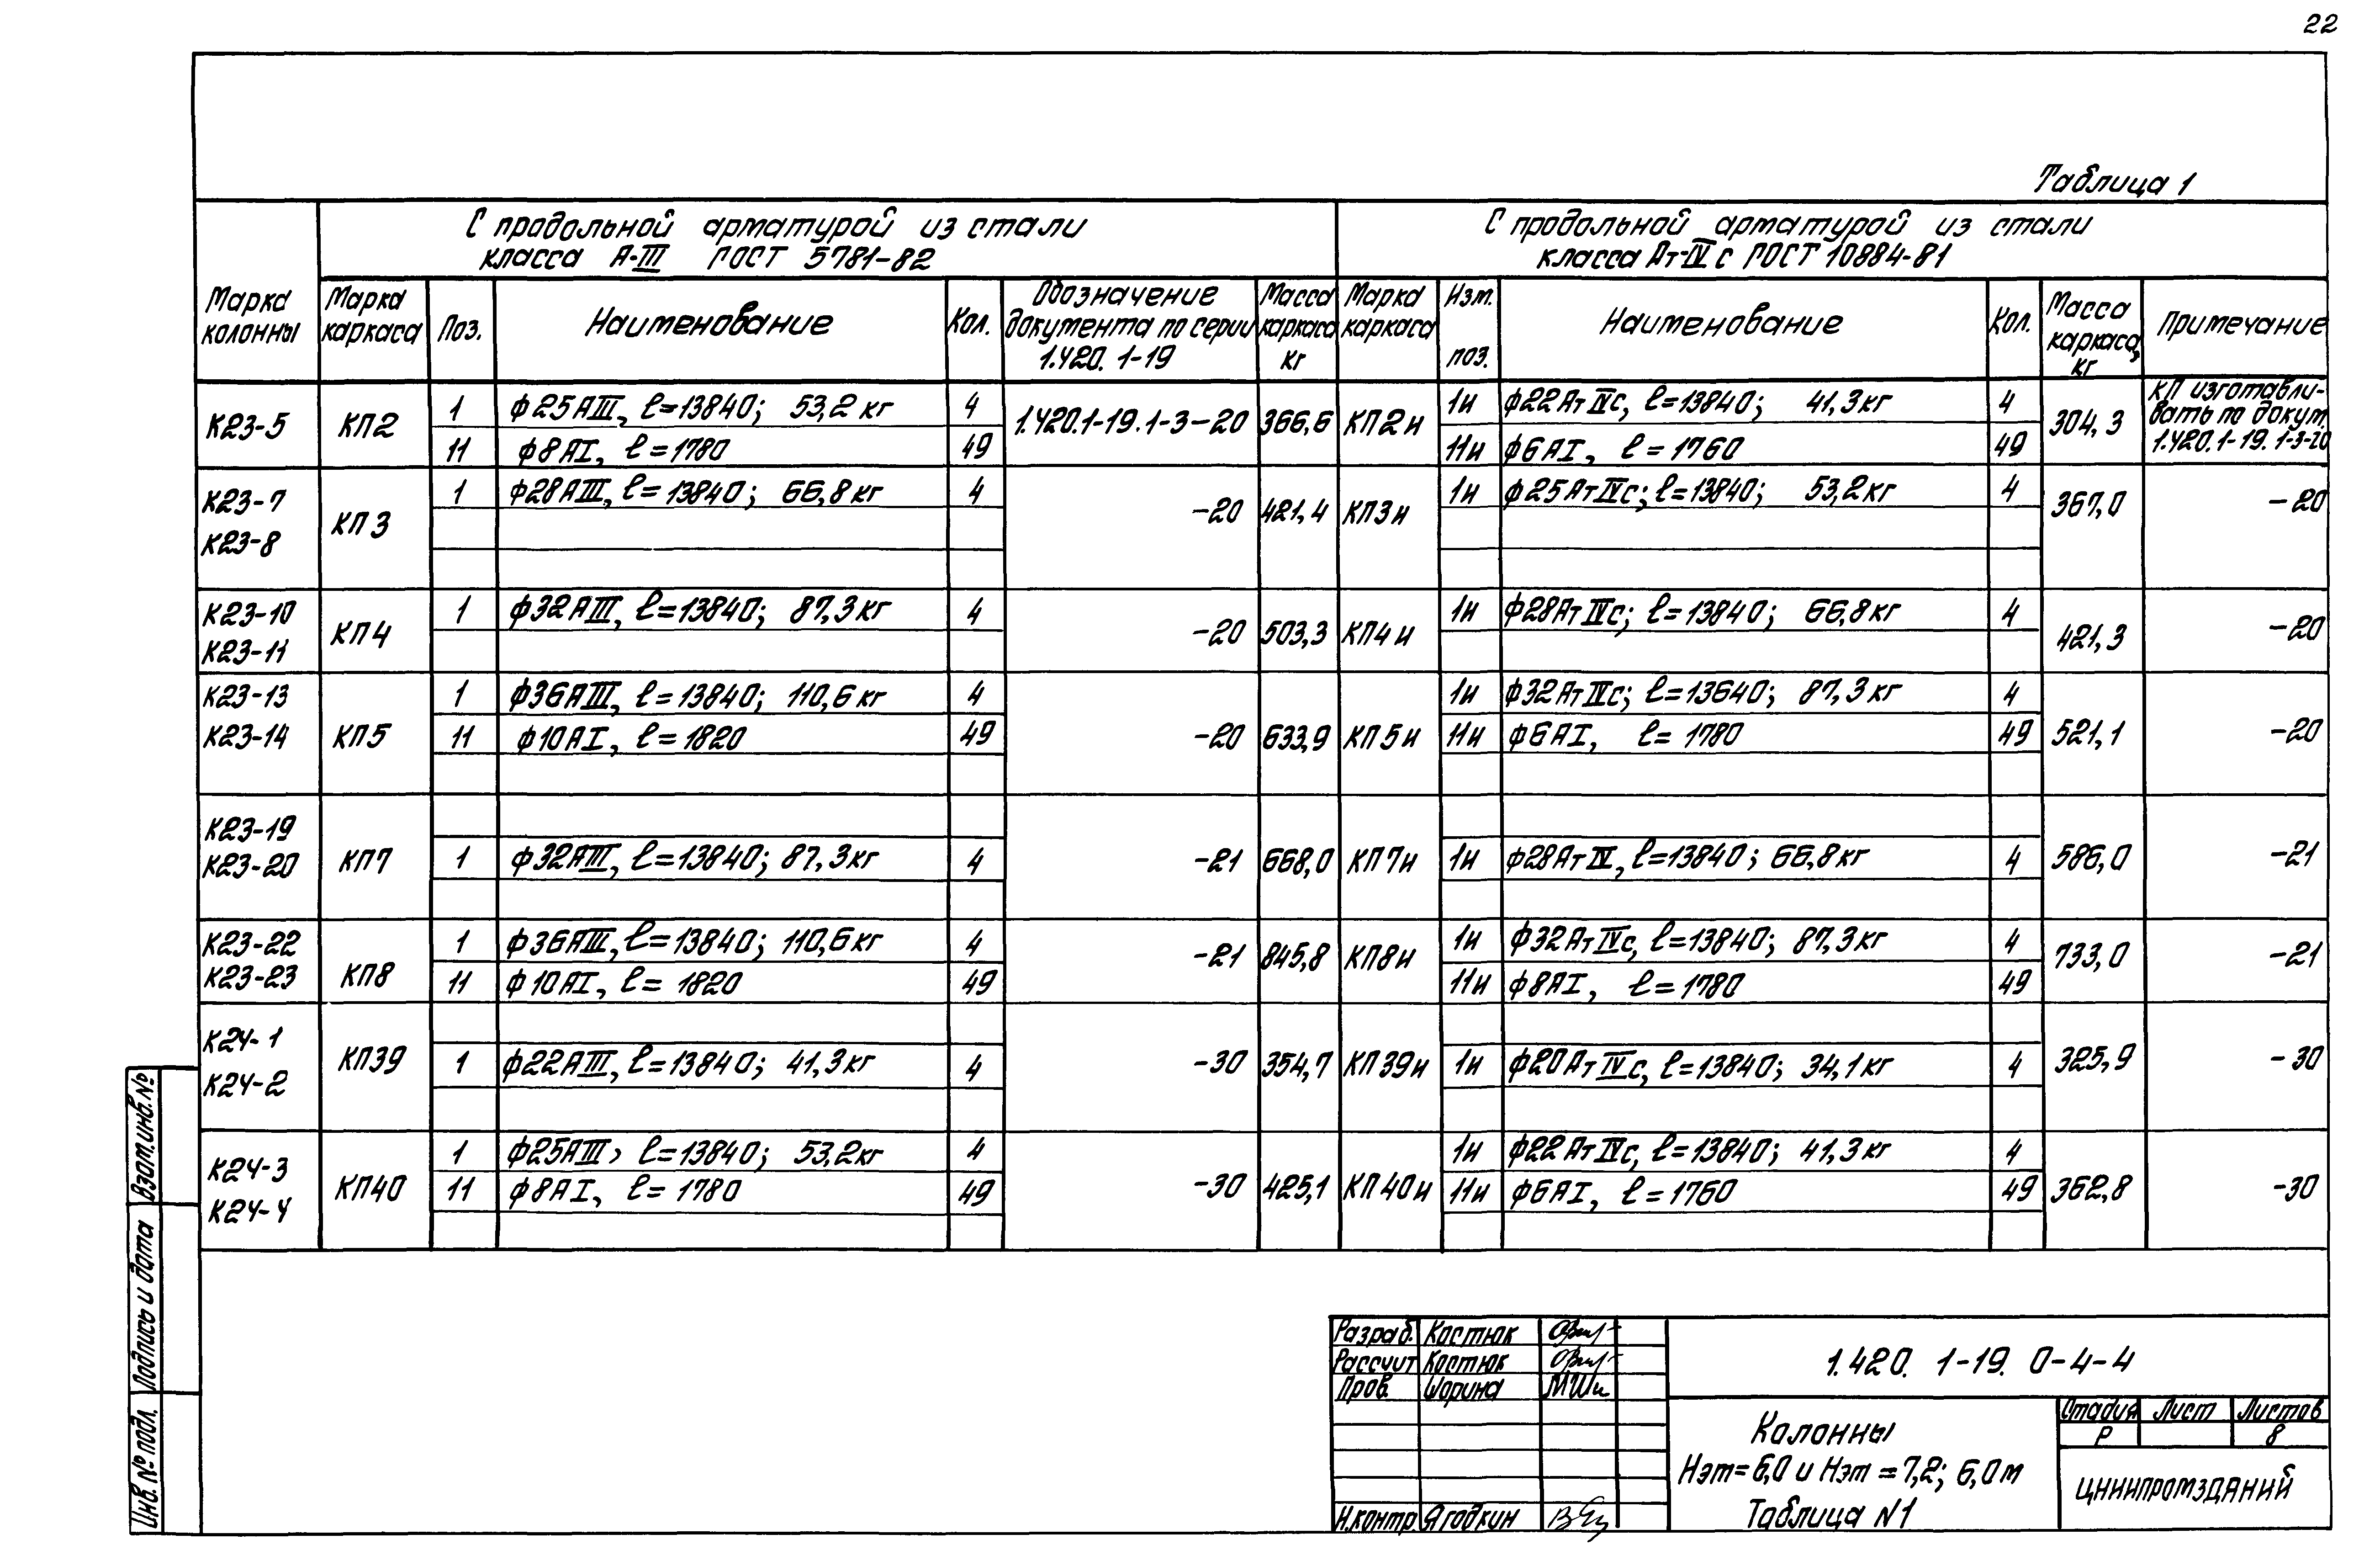 22
Таблица 1
С продольной арматурой из стали
класса А-III ГОСТ 5781-82
С продольной арматурой из стали
класса Ат-IVс ГОСТ 10884-81
Марка колонны
Марка каркаса
Поз.
Наименование
Кол.
Обозначение документа по серии 1.420. 1-19
Масса каркаса кг
Марка каркаса
Изм. поз.
Наименование
Кол.
Масса каркаса, кг
Примечание
К23-5 КП2 1 ф25АIII, ℓ=13840; 53,2кг 4 1.420.1-19.1-3-20 366,6 КП2и 1и ф22АтIVс, ℓ=13840; 41,3кг 4 304,3 КП изготавли-
вать по докум.
11 ф8АI, ℓ=1780 49 11и ф6АI, ℓ=1760 49 1.420.1-19.1-3-20
К23-7 КП3 1 ф28АIII, ℓ=13840; 66,8кг 4 -20 421,4 КП3и 1и ф25АтIVс; ℓ=13840; 53,2кг 4 367,0 -20
К23-8
К23-10 КП4 1 ф32АIII, ℓ=13840; 87,3кг 4 -20 503,3 КП4и 1и ф28АтIVс; ℓ=13840; 66,8кг 4 421,3 -20
К23-11
К23-13 1 ф36АIII, ℓ=13840; 110,6кг 4 1и ф32АтIVс; ℓ=13640; 87,3кг 4
К23-14 КП5 11 ф10АI, ℓ=1820 49 -20 633,9 КП5и 11и ф6АI, ℓ=1780 49 521,1 -20
К23-19
К23-20 КП7 1 ф32АIII, ℓ=13840; 87,3кг 4 -21 668,0 КП7и 1и ф28АтIV, ℓ=13840; 66,8кг 4 586,0 -21
К23-22 1 ф36АIII, ℓ=13840; 110,6кг 4 -21 845,8 КП8и 1и ф32АтIVс, ℓ=13840; 87,3кг 4 733,0 -21
К23-23 КП8 11 ф10АI, ℓ=1820 49 11и ф8АI, ℓ=1780 49
К24-1
К24-2 КП39 1 ф22АIII, ℓ=13840; 41,3кг 4 -30 354,7 КП39и 1и ф20АтIVс, ℓ=13840; 34,1кг 4 325,9 -30
К24-3 1 ф25АIII, ℓ=13840; 53,2кг 4 1и ф22АтIVс, ℓ=13840; 41,3кг 4
К24-4 КП40 11 ф8АI, ℓ=1780 49 -30 425,1 КП40и 11и ф6АI, ℓ=1760 49 362,8 -30
Взам.инв.№
Подпись и дата
Инв.№ подл.
Разраб. Костюк
Рассчит Костюк
Пров. Шорина
Н.контр. Ягодкин
1.420. 1-19. 0-4-4
Колонны
Нэт=6,0 и Нэт=7,2; 6,0м
Таблица N1
Стадия Лист Листов
Р 8
ЦНИИПРОМЗДАНИЙ